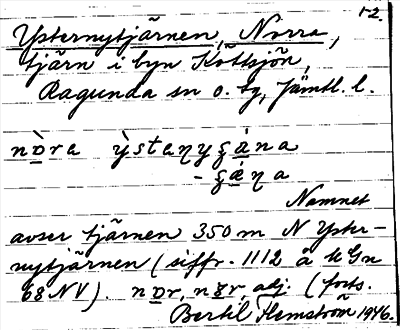 1-2.
Ysternytjärnen, Norra,
tjärn i byn Köttsjön,
Ragunda sn o. tg, Jämtl. l.
nɒ̀ra ỳstaɳyʂána
-ʂáɳa
Namnet
avser tjärnen 350 m N Yster-
nytjärnen (siffr. 1112 å kGn
68 NV). nɒr, adj. (forts.
Bertil Flemström 1946.